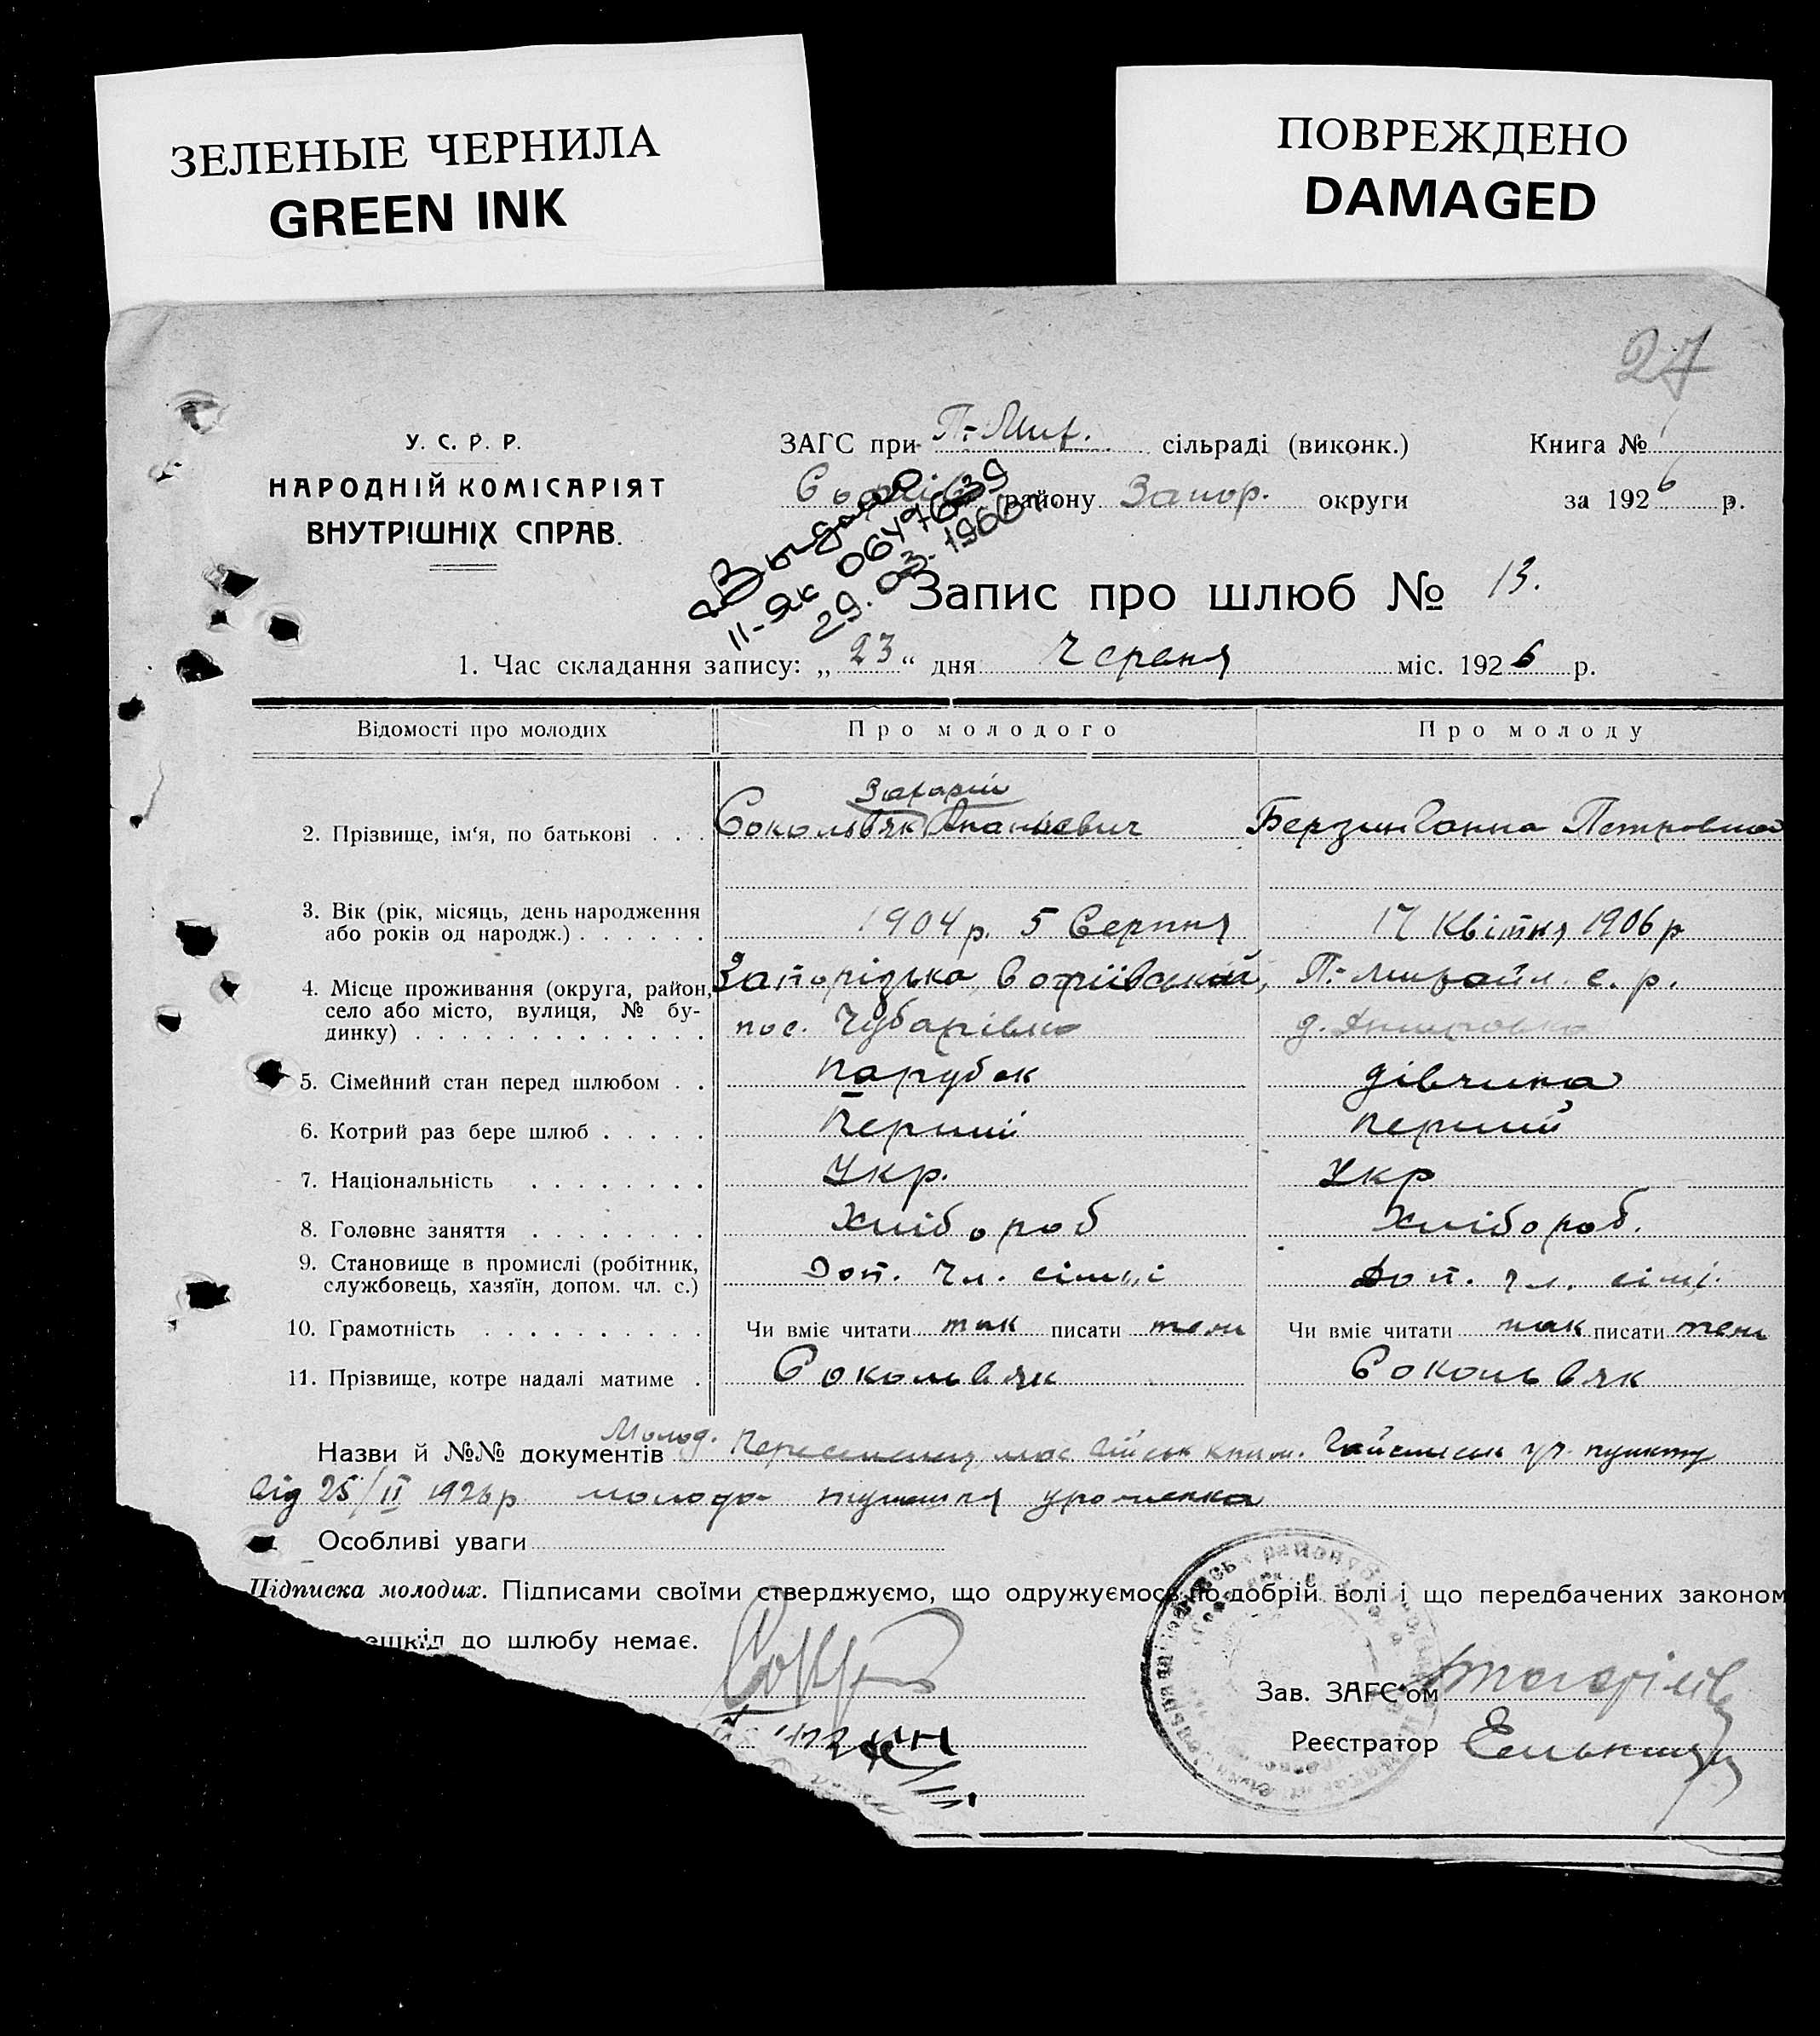 ЗЕЛЕНЫЕ ЧЕРНИЛА
GREEN INK
ПОВРЕЖДЕНО
DAMAGED
27
У. С. Р. Р.
НАРОДНІЙ КОМІСАРІЯТ
ВНУТРІШНІХ СПРАВ.
ЗАГС при П.-Мих. сільраді (виконк.) Книга №
району Запор. округи за 1926 р.
II-ЯК 0647639
29.03.1966
Запис про шлюб № 13.
1. Час складання запису: „23“ дня Червня міс. 1926 р.
Відомості про молодих Про молодого Про молоду
Захарій
2. Прізвище, ім‘я, по батькові . . . Сокольвяк Ананьевич Берзин Ганна Петровна
3. Вік (рік, місяць, день народження 1904 р. 5 Серпня 17 Квітня 1906 р
або років од народж.) . . . . . .
4. Місце проживання (округа, район, Запорізька, Софіївський, П.-Михайл. с. р.
село або місто, вулиця, № бу- пос. Чубарівка д.
динку) . . . . . . . . . . . . .
5. Сімейний стан перед шлюбом . . парубок дівчина
6. Котрий раз бере шлюб . . . . . Перший перший
7. Національність . . . . . . . . Укр. Укр
8. Головне заняття . . . . . . . . Хлібороб Хлібороб.
9. Становище в промислі (робітник, Доп. чл. сімьі Доп. чл. сімі.
службовець, хазяїн, допом. чл. с.)
10. Грамотність . . . . . . . . . . Чи вміє читати так писати теж Чи вміє читати так писати теж
11. Прізвище, котре надалі матиме . Сокольвяк Сокольвяк
Молод.
Назви й №№ документів військ книж. пункту
від 25/II 1926 р молода тутешня уроженка
Особливі уваги
Підписка молодих. Підписами своїми стверджуємо, що одружуємось по добрій волі і що передбачених законом
ешкід до шлюбу немає.
Зав. ЗАГС‘ом
Реєстратор